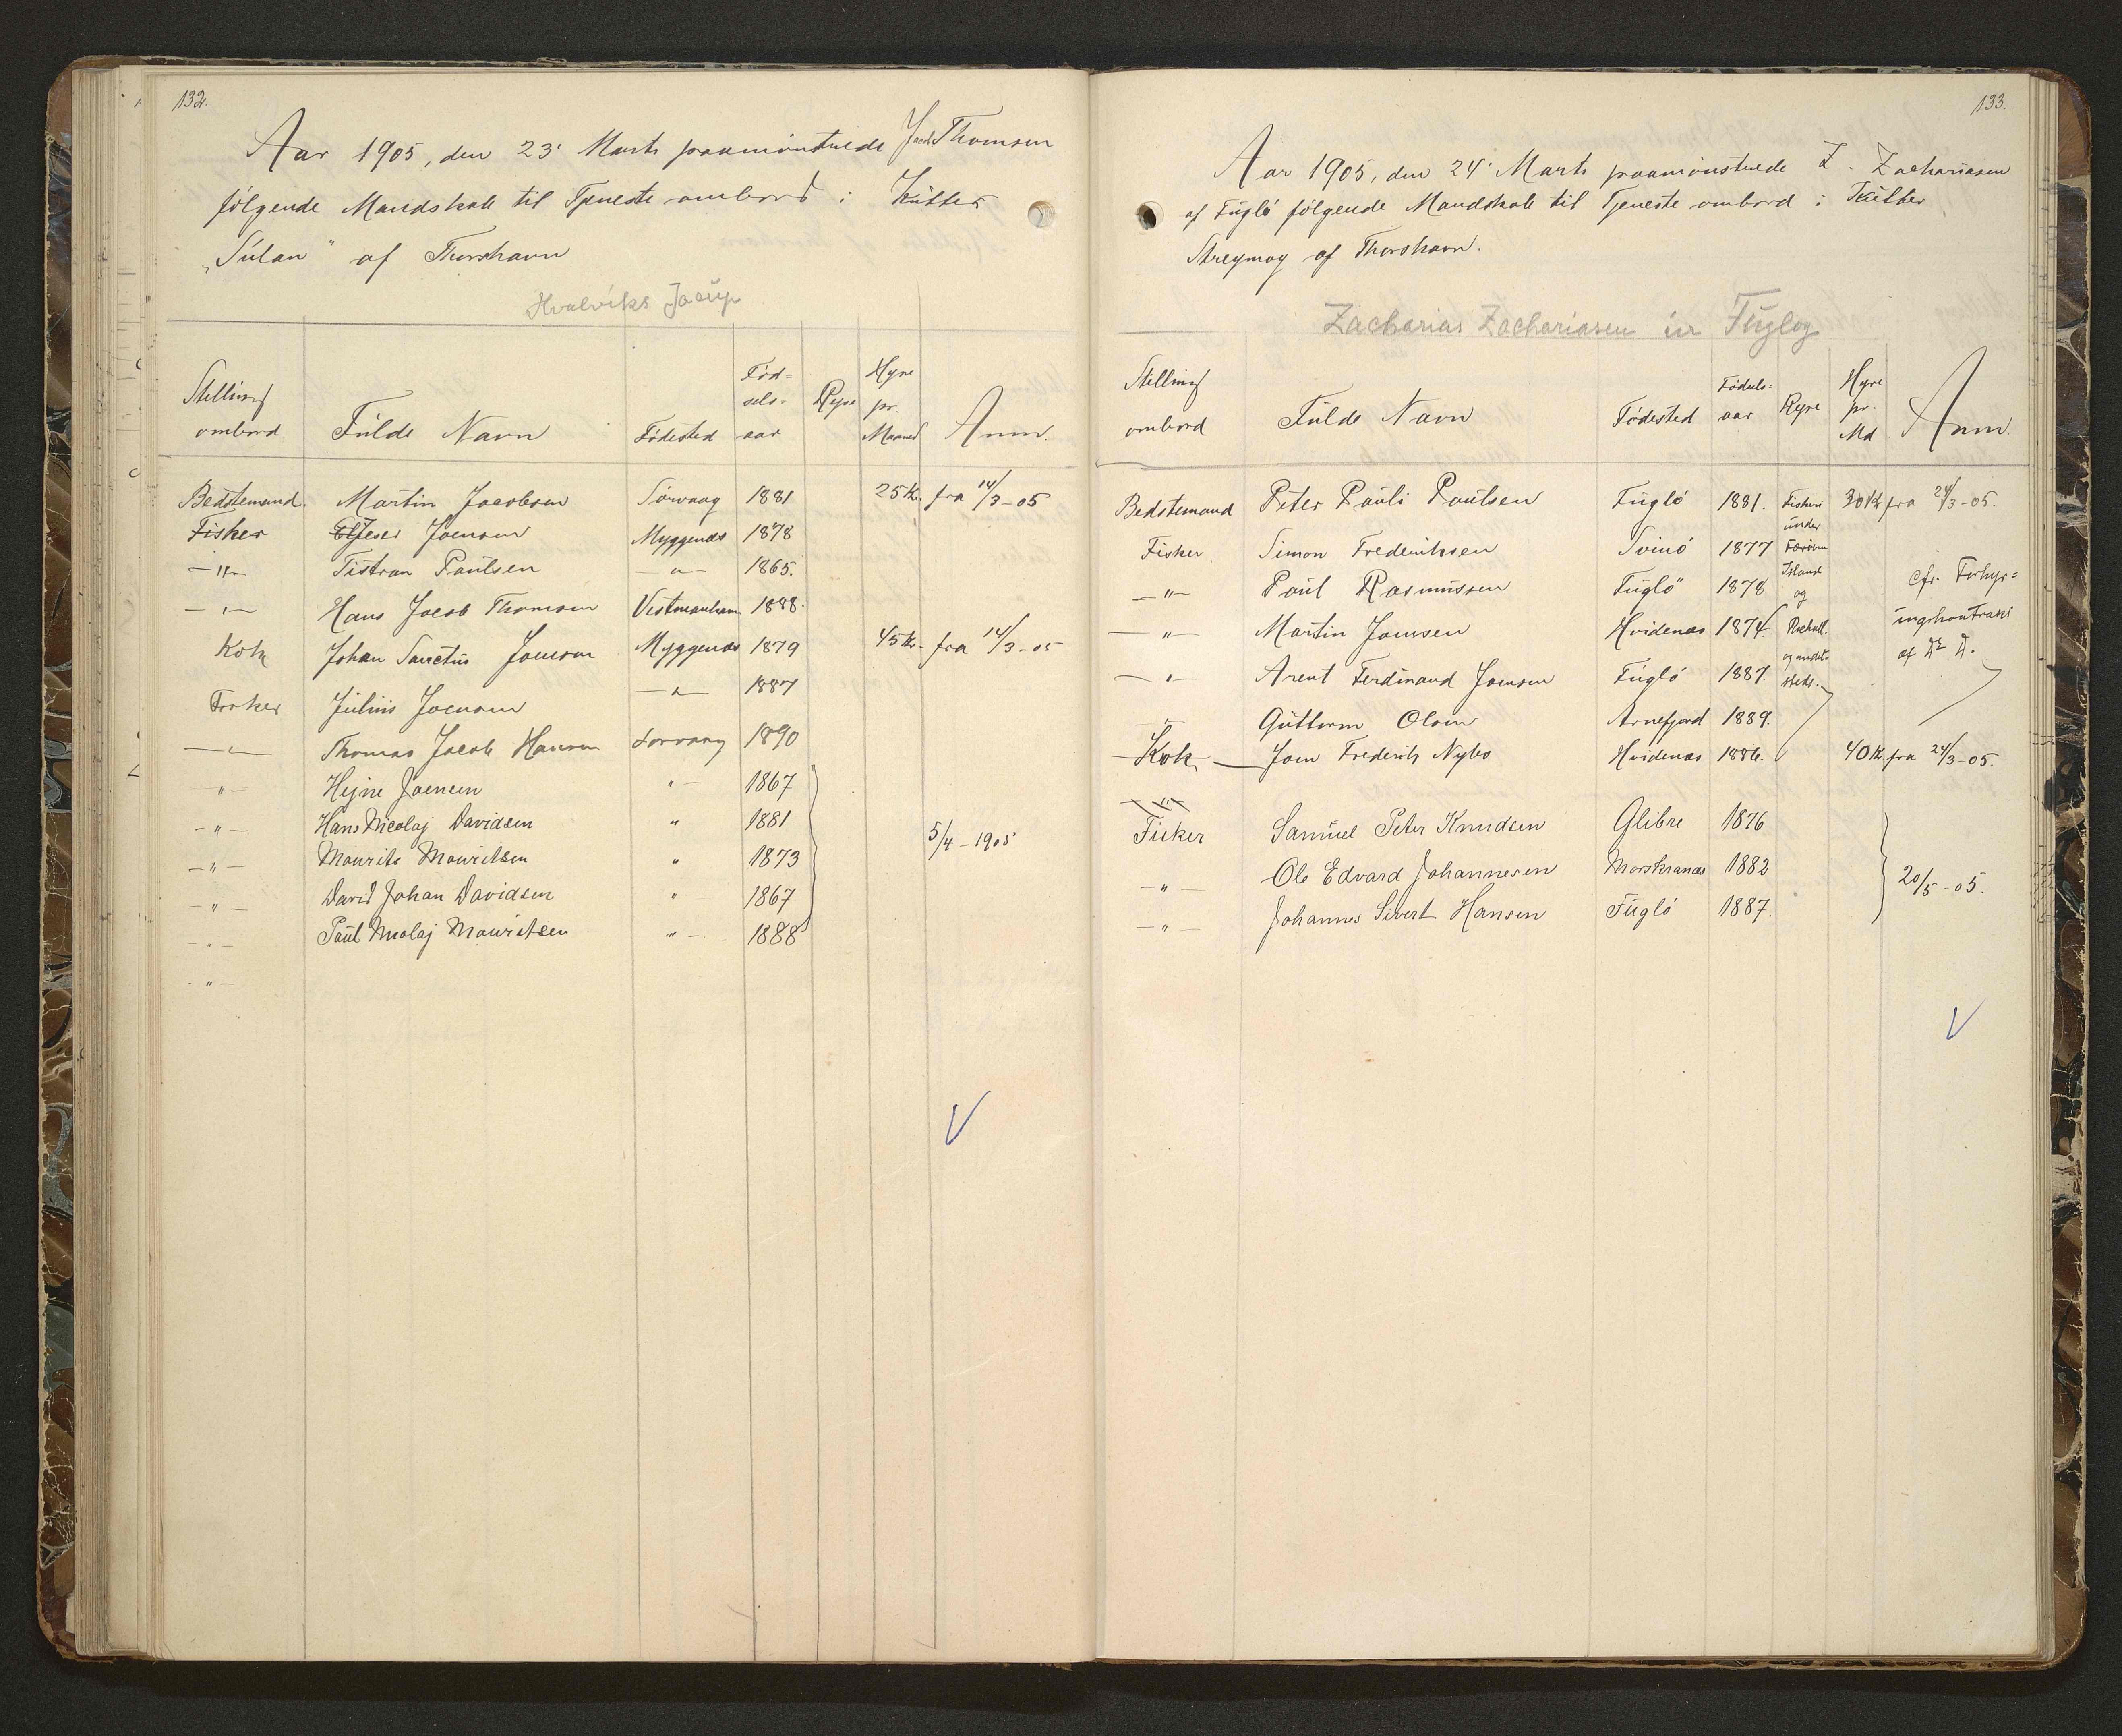 132.
Aar 1905, den 23' Marts paamönstrede Jacob Thomsen
følgende Mandskab til Tjeneste ombord i Kutter
"Súlan" af Thorshavn
Hvalviks Jacup
Stilling ombord | Fulde Navn | Fødested | Fødselsaar | Rejse | Hyre pr. Maaned | Anm.
Bedstemand. Martin Jacobsen Sörvaag 1881 25 Kr. fra 14/3-05
Fisker Joensen Myggenæs 1878
—"— Tistran Paulsen —"— 1865.
—"— Hans Jacob Thomsen Vestmanhavn 1888.
Kok Johan Sanctus Joensen Myggenæs 1879 45 Kr. fra 14/3-05
Fisker Julius Joensen —"— 1887
—"— Thomas Jacob Hansen Sorvaag 1890
—"— Hejne Joensen " 1867
—"— Hans Nicolaj Davidsen " 1881
—"— Mourits Mouritsen " 1873 5/4-1905
—"— David Johan Davidsen " 1867
—"— Paul Nicolaj Mouritsen " 1888
—"—
133.
Aar 1905, den 24' Marts paamönstrede Z. Zachariasen
af Fuglö følgende Mandskab til Tjeneste ombord i Kutter
Streymoy af Thorshavn.
Zacharias Zachariasen úr Fugloy
Stilling ombord | Fulde Navn | Fødested | Fødselsaar | Rejse | Hyre pr. Md | Anm.
Bedstemand Peter Pauli Poulsen Fuglö 1881. Fiskeri 30 Kr fra 24/3-05.
under
Fisker Simon Frederiksen Svinö 1877 Færöerne
Island
—"— Poul Rasmussen Fuglö 1878 og cfr. Forhyr=
—"— Martin Joensen Hvidenæs 1874 Rockall. ingskontrakt
og andet= af D. D.
—"— Arent Ferdinand Joensen Fuglö 1887. steds.
—"— Guttorm Olsen Arnefjord 1889.
Kok Joen Frederik Nybo Hvidenæs 1886. 40 Kr. fra 24/3-05.
—"—
Fisker Samuel Peter Knudsen Glibre 1876
—"— Ole Edvard Johannesen Morskranæs 1882 20/5-05.
—"— Johannes Sivert Hansen Fuglö 1887.